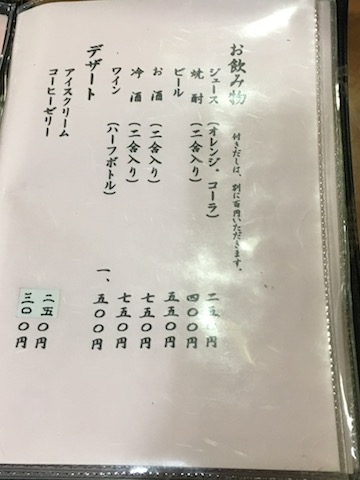 お飲み物 付きだしは、別に百円いただきます。
ジュース (オレンジ、コーラ) 二五〇円
焼酎 (二合入り) 四〇〇円
ビール 五五〇円
お酒 (二合入り) 七五〇円
冷酒 (二合入り) 七五〇円
ワイン (ハーフボトル) 一、五〇〇円
デザート
アイスクリーム 二五〇円
コーヒーゼリー 三〇〇円